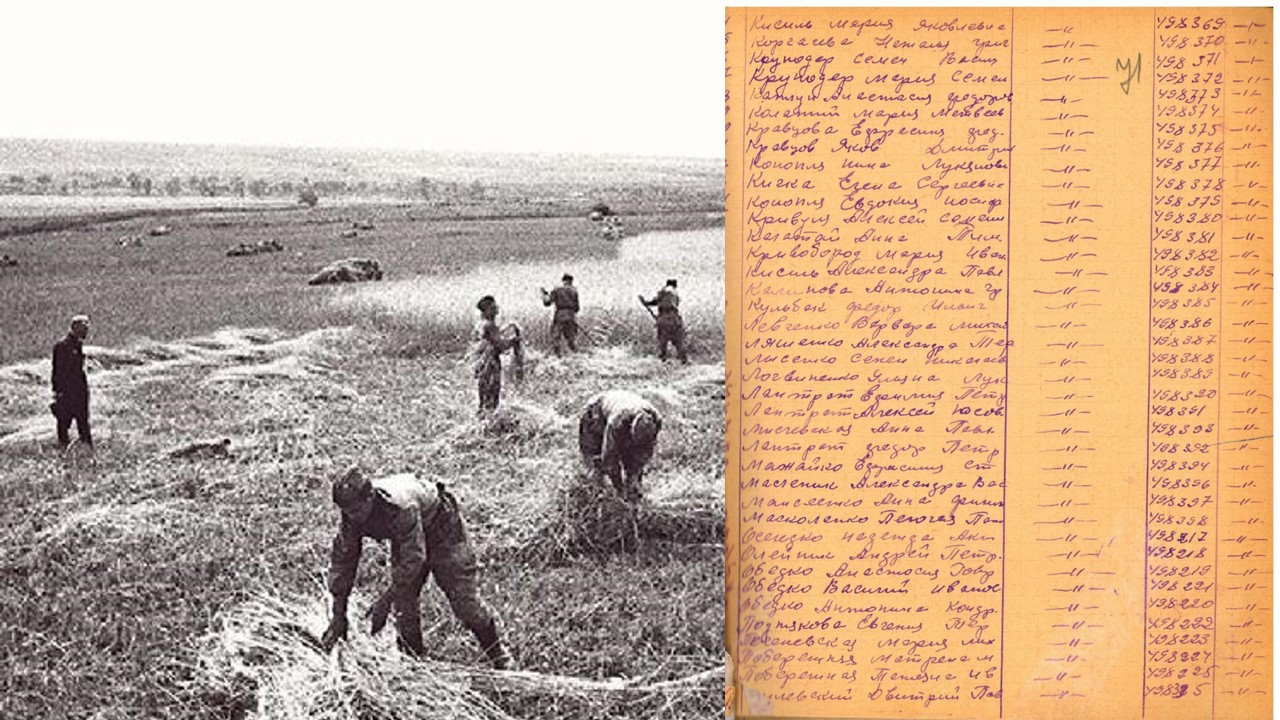 Кисиль Мария Яковлевна —"— 498369 —"—
Коргаева Наталия Григ —"— 498370 —"—
Круподер Семен Васил —"— 498371 —"—
Круподер Мария Семен —"— 71 498372 —"—
Анастасия Федоров —"— 498373 —"—
Мария Матвеев —"— 498374 —"—
Кравцова Ефросиния Фед. —"— 498375 —"—
Кравцов Яков Дмитри —"— 498376 —"—
Конопля Нина Лукинов —"— 498377 —"—
Кичка Елена Сергеевна —"— 498378 —"—
Конопля Евдокия Иосиф —"— 498379 —"—
Кривуля Алексей Семен —"— 498380 —"—
Анна Тим. —"— 498381 —"—
Кривобород Мария Иван —"— 498382 —"—
Кисиль Александра Павл —"— 498383 —"—
Калинова Антонина Гр —"— 498384 —"—
Кульбак Федор —"— 498385 —"—
Левченко Варвара Михай —"— 498386 —"—
Ляшенко Александра —"— 498387 —"—
Лысенко Семен Николаев —"— 498388 —"—
Логвиненко Ульяна Лук —"— 498389 —"—
Лантрат Петр —"— 498390 —"—
Лантрат Алексей —"— 498391 —"—
Анна Павл. —"— 498393 —"—
Лантрат Федор Петр —"— 498392 —"—
Мажайко Ефросиния Ст —"— 498394 —"—
Масленик Александра Вас —"— 498396 —"—
Моисеенко Анна Филип —"— 498397 —"—
Пелагея Пав —"— 498398 —"—
Надежда —"— 498217 —"—
Олейник Андрей Петр. —"— 498218 —"—
Обедко Анастасия —"— 498219 —"—
Обедко Василий Иванов —"— 498221 —"—
Обедко Антонина Кондр. —"— 498220 —"—
Евгения —"— 498222 —"—
Мария Мих —"— 498223 —"—
Побережная Матрена М —"— 498224 —"—
Побережная Татьяна Ив —"— 498225 —"—
Дмитрий Пав —"—